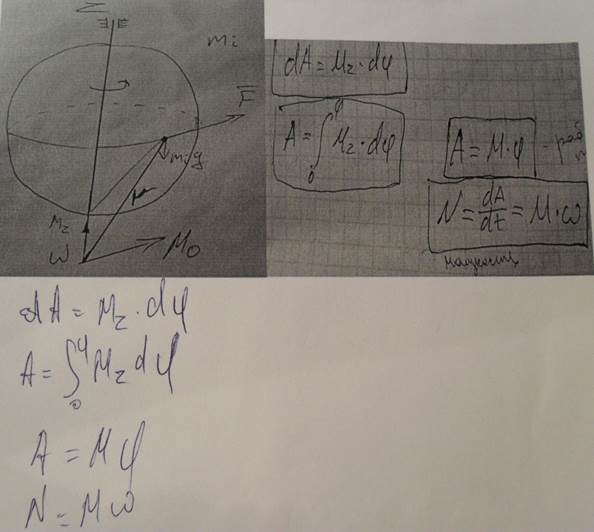 Z
mi
F
mig
r
Mz
ω
M0
dA = Mz · dφ
A = ∫₀^φ Mz · dφ
A = M · φ
N = dA/dt = M · ω
dA = Mz · dφ
A = ∫₀^φ Mz dφ
A = Mφ
N = Mω